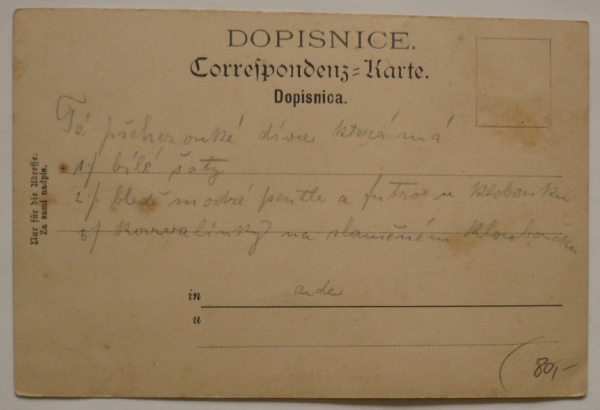 DOPISNICE.
Correspondenz-Karte.
Dopisnica.
Té přehezouké dívce která má
1/ bílé šaty
2/ bledě modré pentle a futro u klobouku
3/ na slaměném kloboučku
Nur für die Adresse.
Za sami nadpis.
in zde
u
80,-